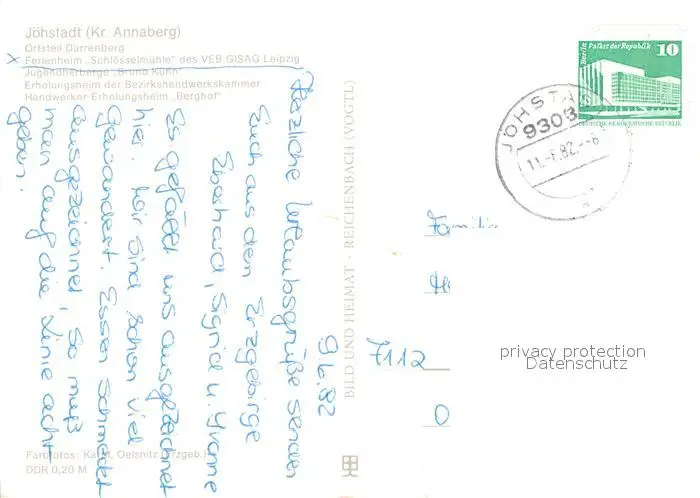 Jöhstadt (Kr. Annaberg)
Ortsteil Dürrenberg
x Ferienheim „Schlösselmühle“ des VEB GISAG Leipzig
Jugendherberge „Bruno Kühn“
Erholungsheim der Bezirkshandwerkskammer
Handwerker-Erholungsheim „Berghof“
9.6.82
Herzliche Urlaubsgrüße senden
Euch aus dem Erzgebirge
Eberhard, Sigrid u. Yvonne
Es gefällt uns ausgezeichnet
hier. Wir sind schon viel
gewandert. Essen schmeckt
ausgezeichnet, so muß
man auf die Linie acht-
geben.
Farbfotos: Oelsnitz (Erzgeb.)
DDR 0,20 M
BILD UND HEIMAT · REICHENBACH (VOGTL)
Berlin Palast der Republik 10
DEUTSCHE DEMOKRATISCHE REPUBLIK
JÖHST
9303
11.-6.82.-8
Familie
7112
O
privacy protection
Datenschutz